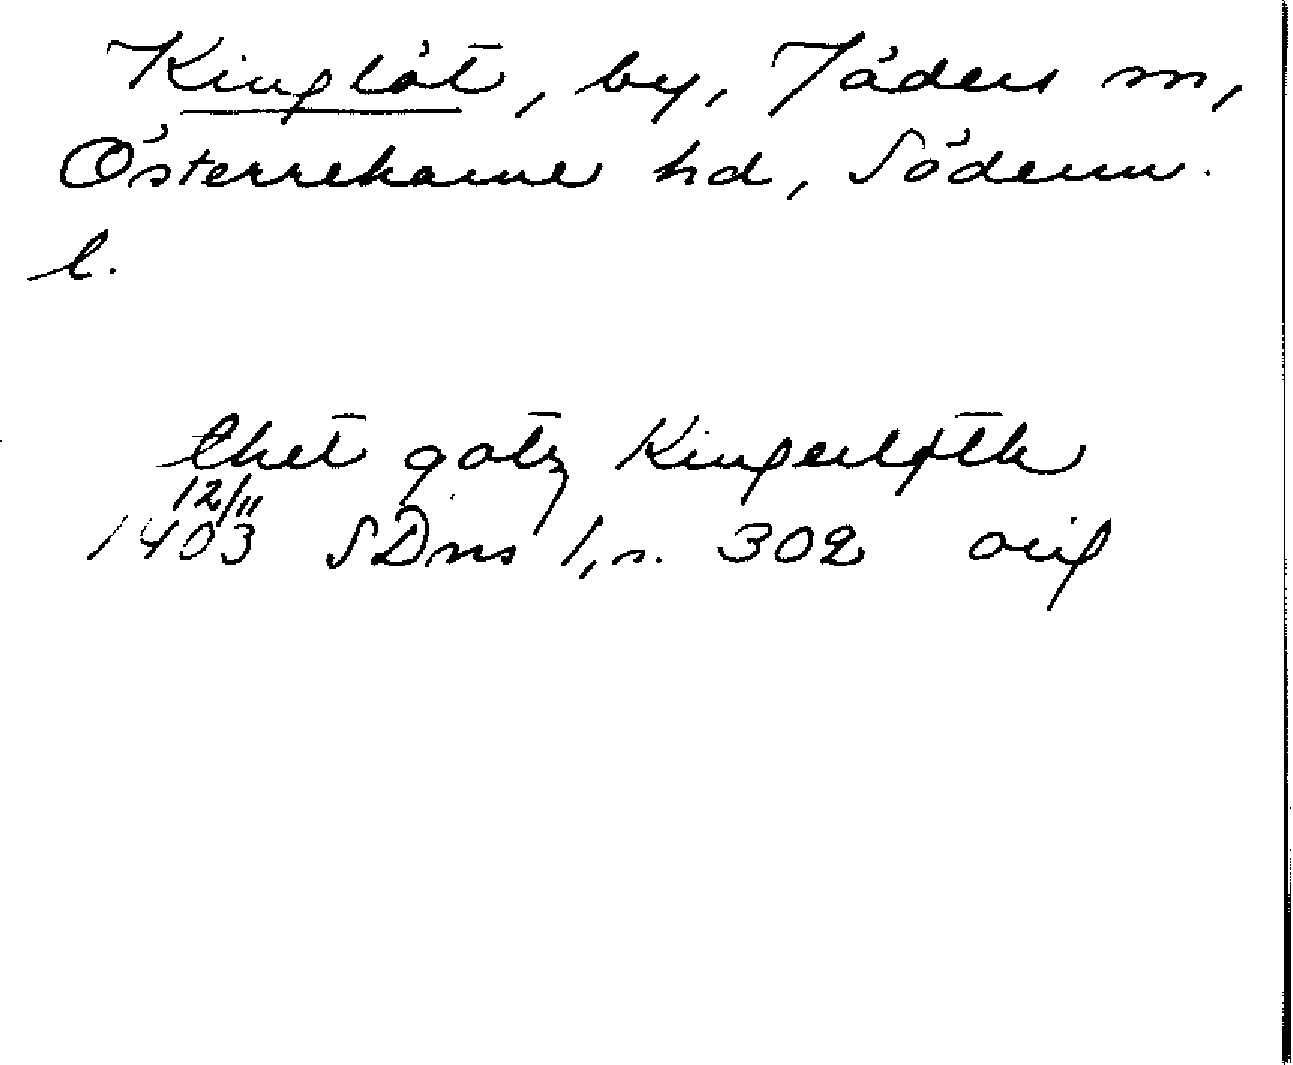 Kinglöt, by, Jäders sn,
Österrekarne hd, Söderm.
l.
thet gotz Kingerløth
12/11
1403 SDns 1, s. 302 orig